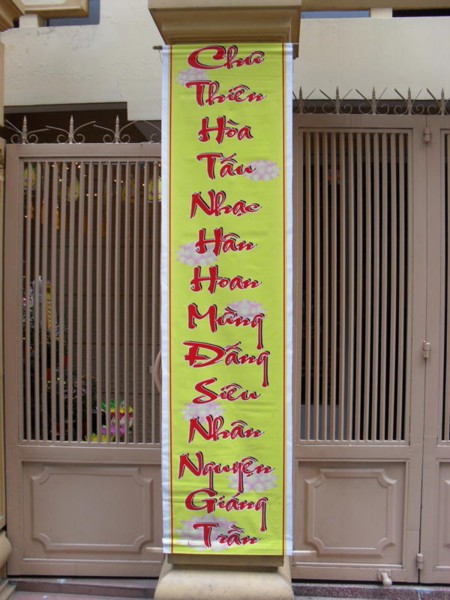 Chư
Thiên
Hòa
Tấu
Nhạc
Hân
Hoan
Mừng
Đấng
Siêu
Nhân
Nguyện
Giáng
Trần